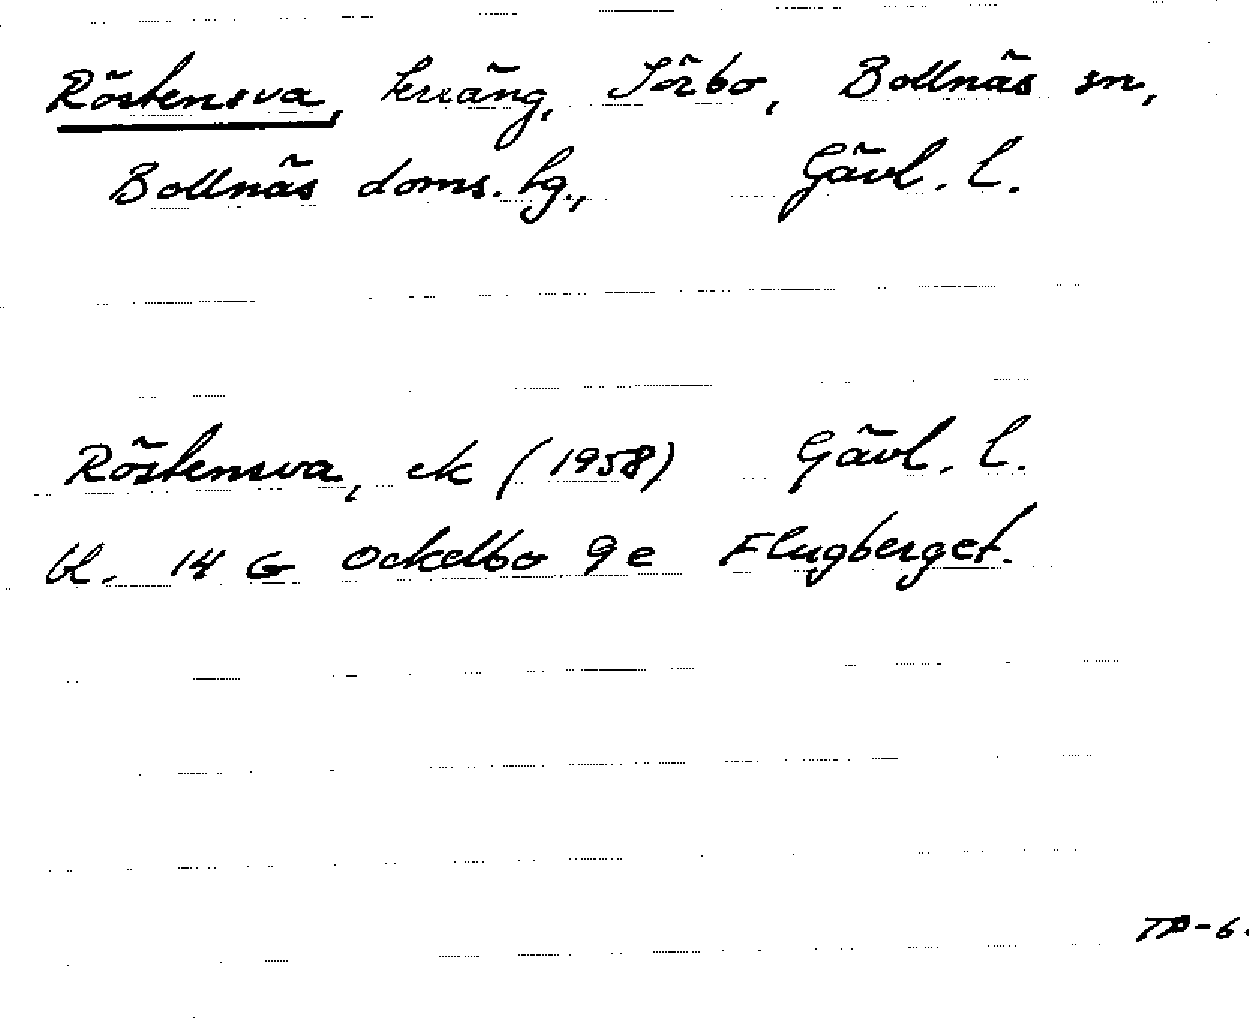 Röstensva, terräng, Sörbo, Bollnäs sn,
Bollnäs doms. hg., Gävl. l.
Röstensva, ek (1958) Gävl. l.
bl. 14 G Ockelbo 9 e Flugberget.
TP-6.